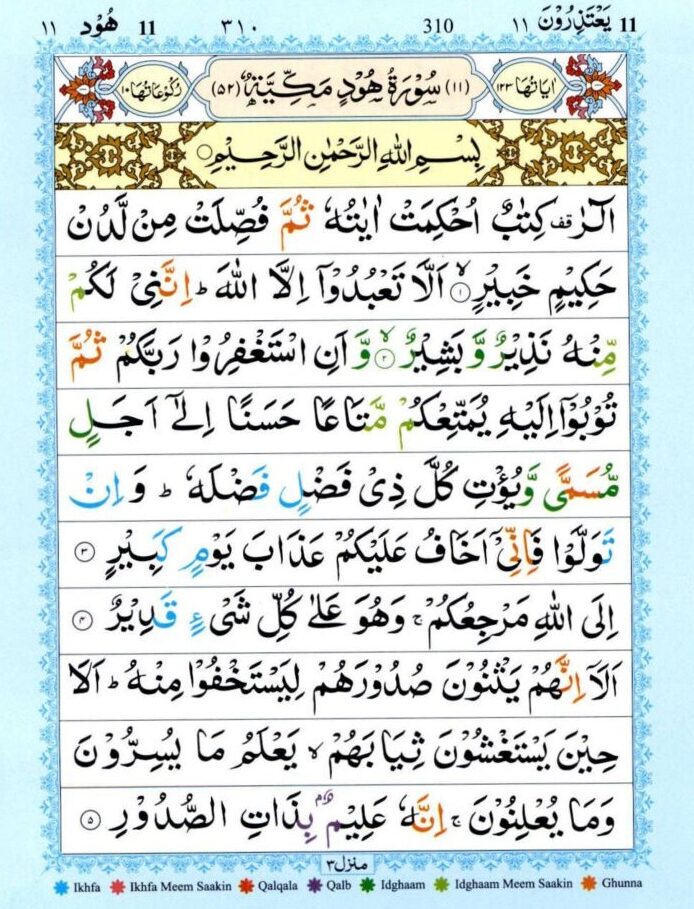 11 يَعْتَذِرُوْنَ ١١ 310 ٣١٠ 11 هُوْد ١١
اٰيَاتُهَا ١٢٣ (١١) سُوْرَةُ هُوْدٍ مَكِّيَّةٌ (٥٢) رُكُوْعَاتُهَا ١٠
بِسْمِ اللهِ الرَّحْمٰنِ الرَّحِيْمِ
الٓرٰ قف كِتٰبٌ اُحْكِمَتْ اٰيٰتُهٗ ثُمَّ فُصِّلَتْ مِنْ لَّدُنْ
حَكِيْمٍ خَبِيْرٍ ۙ‏ ١ اَلَّا تَعْبُدُوْۤا اِلَّا اللهَ ؕ اِنَّنِىْ لَكُمْ
مِّنْهُ نَذِيْرٌ وَّ بَشِيْرٌ ۙ‏ ٢ وَّ اَنِ اسْتَغْفِرُوْا رَبَّكُمْ ثُمَّ
تُوْبُوْۤا اِلَيْهِ يُمَتِّعْكُمْ مَّتَاعًا حَسَنًا اِلٰٓى اَجَلٍ
مُّسَمًّى وَّيُؤْتِ كُلَّ ذِىْ فَضْلٍ فَضْلَهٗ ؕ وَ اِنْ
تَوَلَّوْا فَاِنِّىْۤ اَخَافُ عَلَيْكُمْ عَذَابَ يَوْمٍ كَبِيْرٍ ٣
اِلَى اللهِ مَرْجِعُكُمْ ۚ وَهُوَ عَلٰى كُلِّ شَىْءٍ قَدِيْرٌ ٤
اَلَاۤ اِنَّهُمْ يَثْنُوْنَ صُدُوْرَهُمْ لِيَسْتَخْفُوْا مِنْهُ ؕ اَلَا
حِيْنَ يَسْتَغْشُوْنَ ثِيَابَهُمْ ۙ يَعْلَمُ مَا يُسِرُّوْنَ
وَمَا يُعْلِنُوْنَ ۚ اِنَّهٗ عَلِيْمٌۢ بِذَاتِ الصُّدُوْرِ ٥
منزل ٣
Ikhfa Ikhfa Meem Saakin Qalqala Qalb Idghaam Idghaam Meem Saakin Ghunna